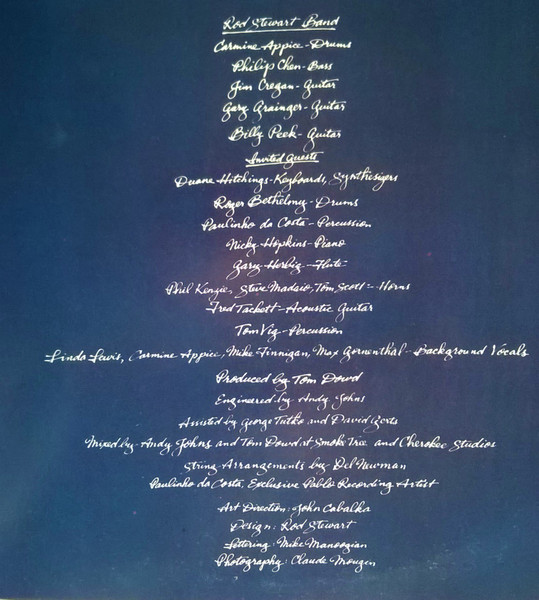 Rod Stewart Band
Carmine Appice - Drums
Philip Chen - Bass
Jim Cregan - Guitar
Gary Grainger - Guitar
Billy Peek - Guitar
Invited Guests
Duane Hitchings - Keyboards, Synthesizers
Roger Bethelmy - Drums
Paulinho da Costa - Percussion
Nicky Hopkins - Piano
Gary Herbig - Flute
Phil Kenzie, Steve Madaio, Tom Scott - Horns
Fred Tackett - Acoustic Guitar
Tom Vig - Percussion
Linda Lewis, Carmine Appice, Mike Finnigan, Max Gornenthal - Background Vocals
Produced by Tom Dowd
Engineered by Andy Johns
Assisted by George Tutko and David Gerts
Mixed by Andy Johns and Tom Dowd at Smoke Tree and Cherokee Studios
String Arrangements by Del Newman
Paulinho da Costa, Exclusive Pablo Recording Artist
Art Direction: John Cabalka
Design: Rod Stewart
Lettering: Mike Manoogian
Photography: Claude Mougin